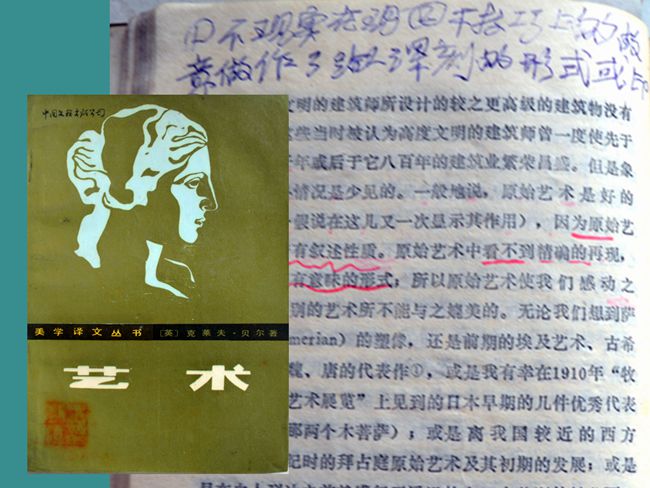 ①不现实表现②不技巧上的故
意做作 给人深刻的形式
文明的建筑师所设计的较之更高级的建筑物没有
些当时被认为高度文明的建筑师曾一度使先于
年或后于它八百年的建筑业繁荣昌盛。但是象
情况是少见的。一般地说，原始艺术是好的
假说在这儿又一次显示其作用），因为原始艺
有叙述性质。原始艺术中看不到精确的再现，
有意味的形式；所以原始艺术使我们感动之
别的艺术所不能与之媲美的。无论我们想到萨
merian）的塑像，还是前期的埃及艺术、古希
魏、唐的代表作①，或是我有幸在1910年“牧
艺术展览”上见到的日本早期的几件优秀代表
那两个木菩萨）；或是离我国较近的西方
记时的拜占庭原始艺术及其初期的发展；或是
中国文联出版公司
美学译文丛书 〔英〕克莱夫·贝尔著
艺术